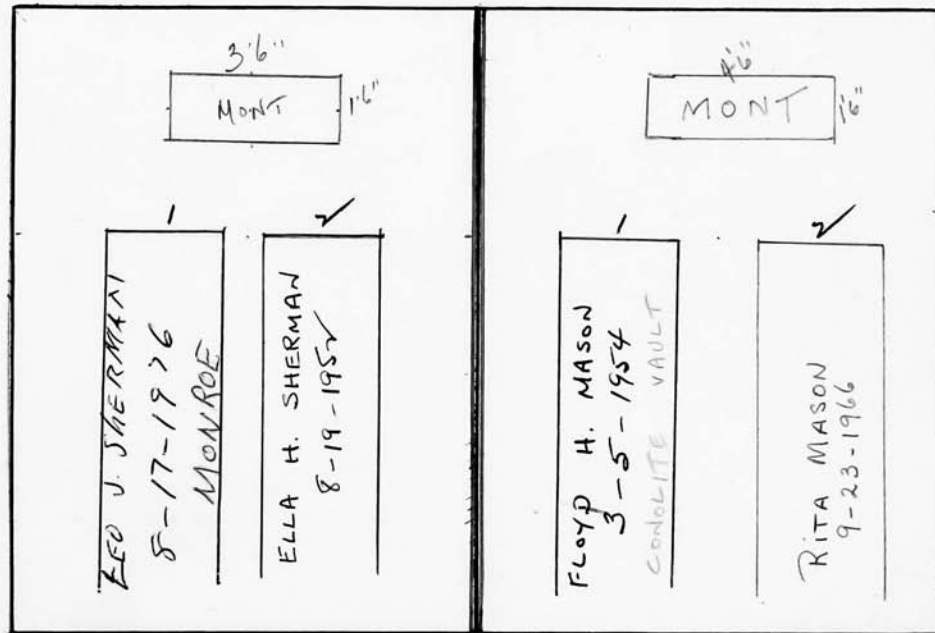 3'6"
MONT
1'6"
1
LEO J. SHERMAN
8-17-1976
MONROE
2
ELLA H. SHERMAN
8-19-1952
4'6"
MONT
1'6"
1
FLOYD H. MASON
3-5-1954
CONOLITE VAULT
2
RITA MASON
9-23-1966